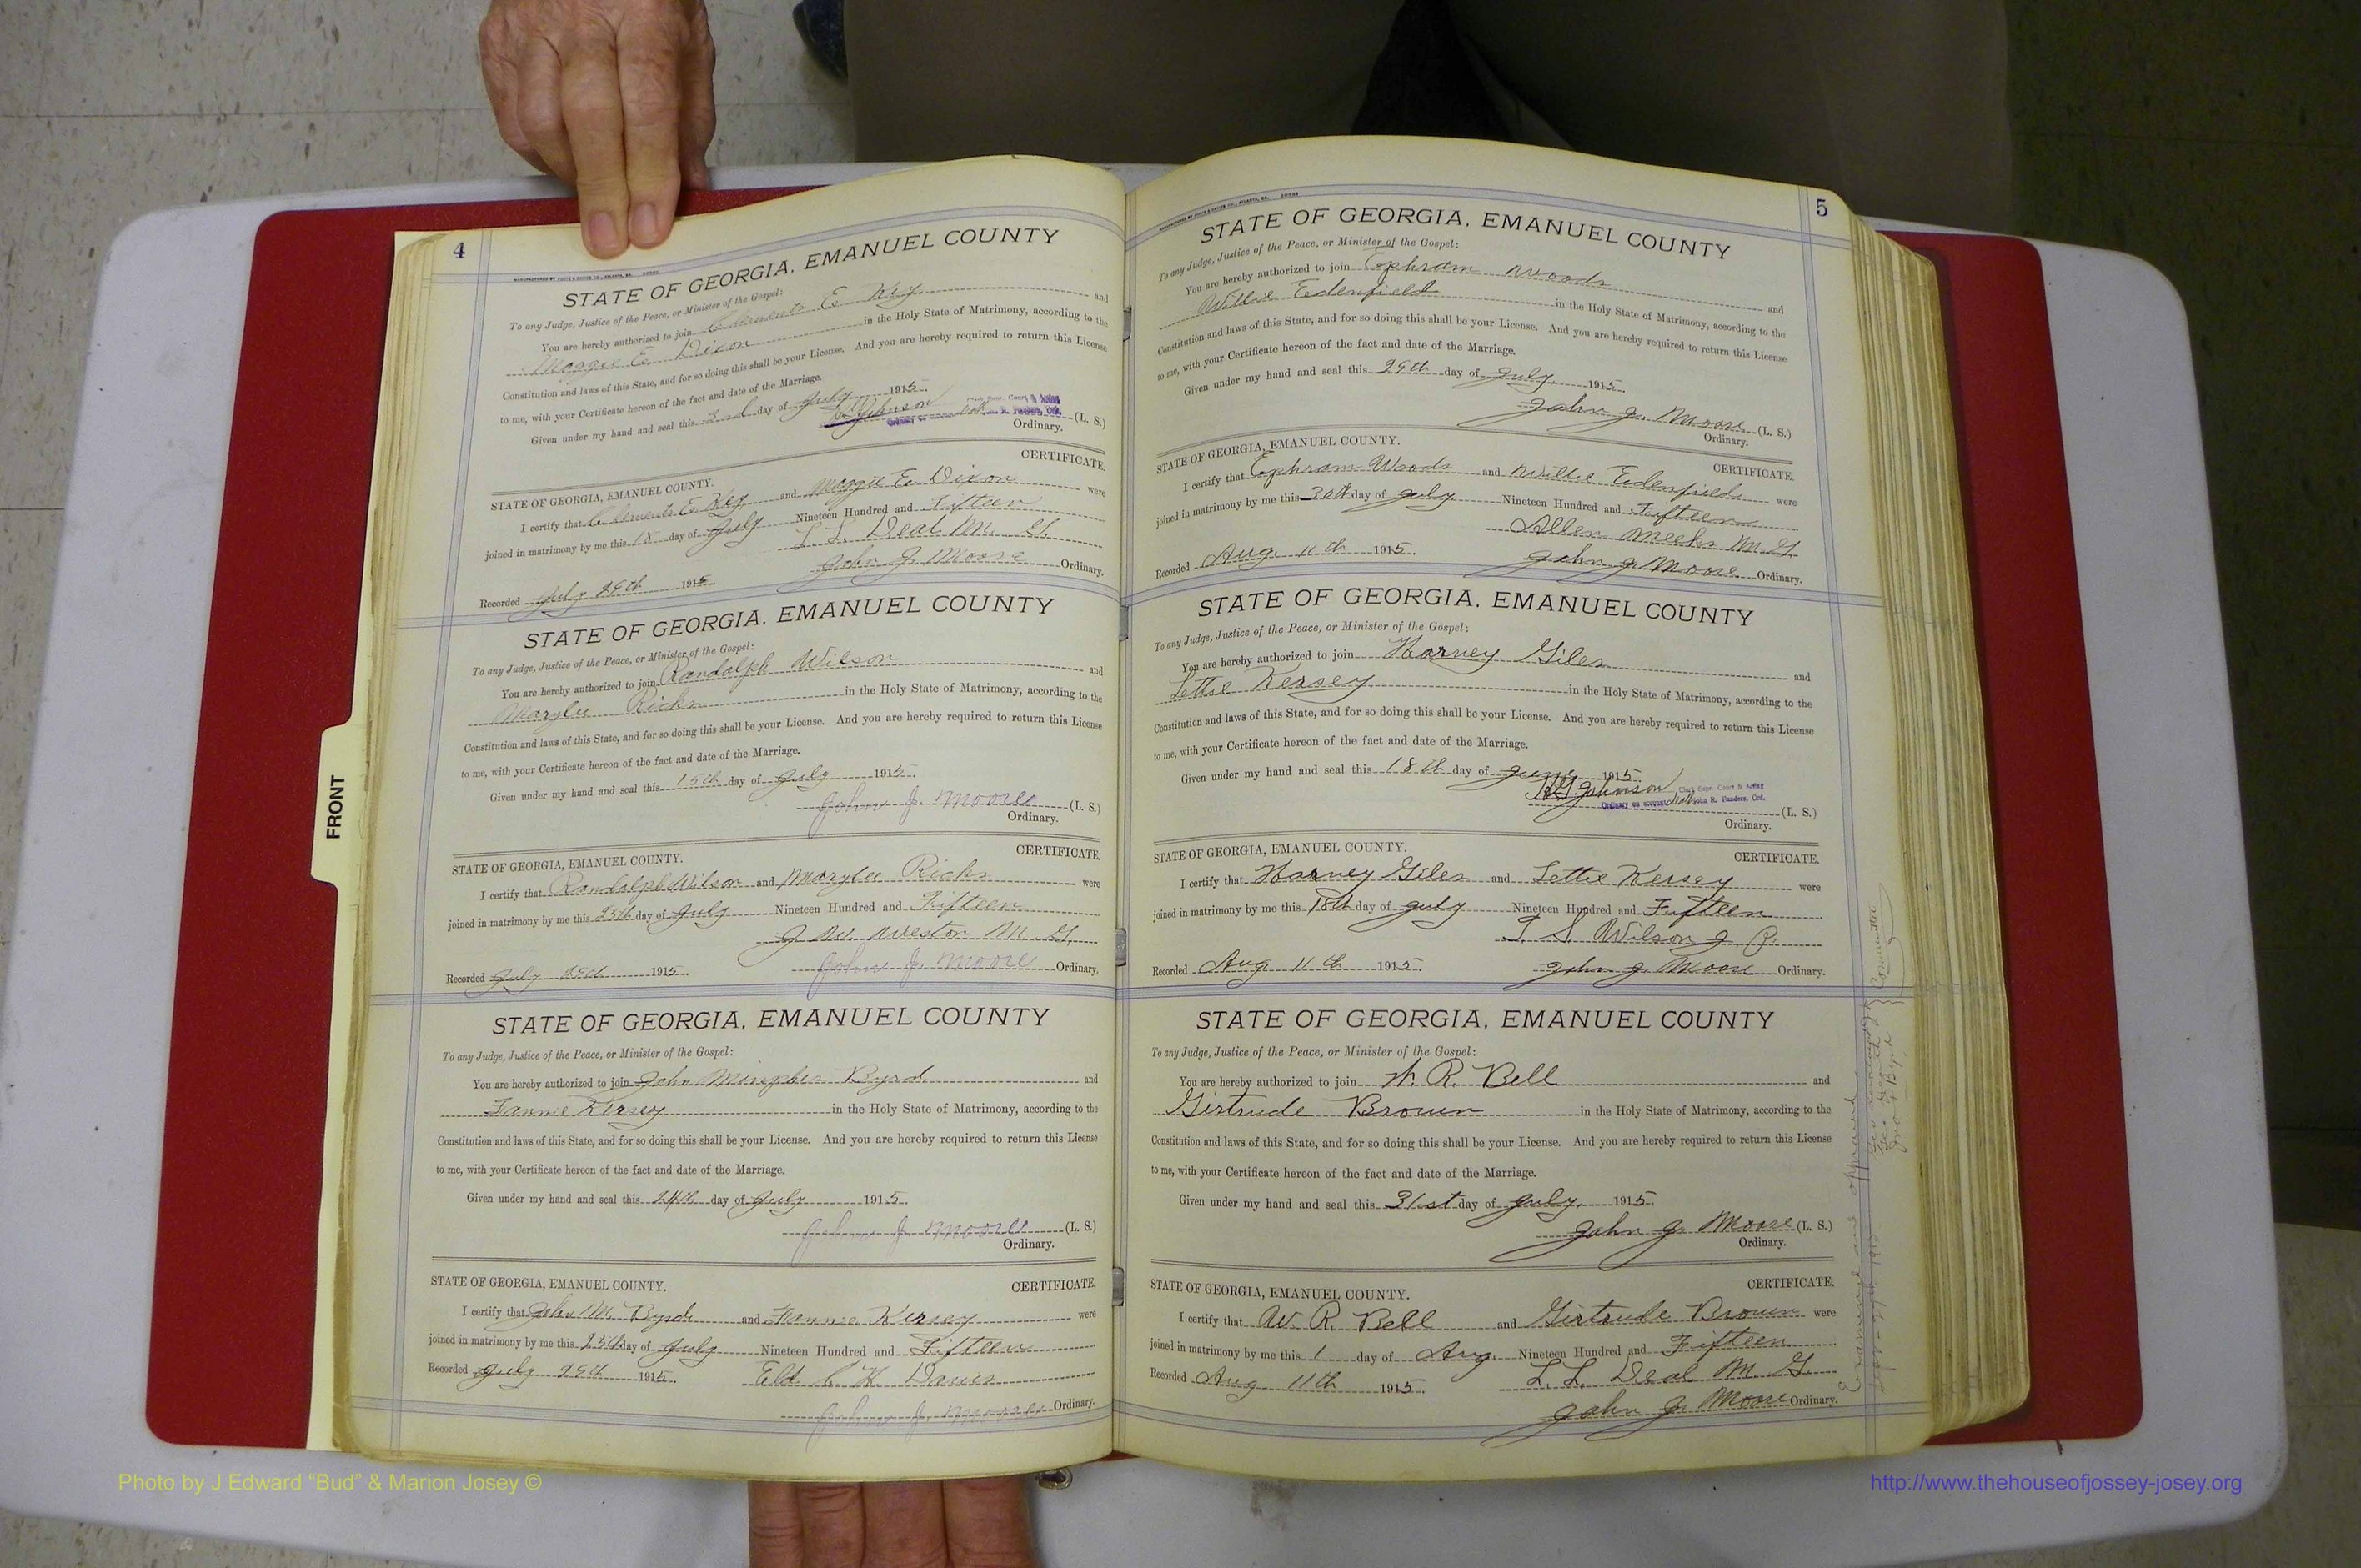 4
STATE OF GEORGIA, EMANUEL COUNTY
To any Judge, Justice of the Peace, or Minister of the Gospel:
You are hereby authorized to join Clements E Key and
Maggie E. Dixon in the Holy State of Matrimony, according to the
Constitution and laws of this State, and for so doing this shall be your License. And you are hereby required to return this License
to me, with your Certificate hereon of the fact and date of the Marriage.
Given under my hand and seal this 3rd day of July 1915.
Johnson (L. S.)
Ordinary.
STATE OF GEORGIA, EMANUEL COUNTY. CERTIFICATE.
I certify that Clements E. Key and Maggie E. Dixon were
joined in matrimony by me this 18 day of July Nineteen Hundred and Fifteen
L. L. Deal M. G.
Recorded July 29th 1915. John J Moore Ordinary.
STATE OF GEORGIA, EMANUEL COUNTY
To any Judge, Justice of the Peace, or Minister of the Gospel:
You are hereby authorized to join Randolph Wilson and
Marylee Ricks in the Holy State of Matrimony, according to the
Constitution and laws of this State, and for so doing this shall be your License. And you are hereby required to return this License
to me, with your Certificate hereon of the fact and date of the Marriage.
Given under my hand and seal this 15th day of July 1915.
John J. Moore (L. S.)
Ordinary.
STATE OF GEORGIA, EMANUEL COUNTY. CERTIFICATE.
I certify that Randolph Wilson and Marylee Ricks were
joined in matrimony by me this 25th day of July Nineteen Hundred and Fifteen
J W. Weston M. G.
Recorded July 29th 1915. John J. Moore Ordinary.
STATE OF GEORGIA, EMANUEL COUNTY
To any Judge, Justice of the Peace, or Minister of the Gospel:
You are hereby authorized to join John Byrd and
Fannie Kersey in the Holy State of Matrimony, according to the
Constitution and laws of this State, and for so doing this shall be your License. And you are hereby required to return this License
to me, with your Certificate hereon of the fact and date of the Marriage.
Given under my hand and seal this 24th day of July 1915.
John J. Moore (L. S.)
Ordinary.
STATE OF GEORGIA, EMANUEL COUNTY. CERTIFICATE.
I certify that John M. Byrd and Fannie Kersey were
joined in matrimony by me this 25th day of July Nineteen Hundred and Fifteen
Recorded July 29th 1915. Eld. C. H. Daves
John J. Moore Ordinary.
FRONT
5
STATE OF GEORGIA, EMANUEL COUNTY
To any Judge, Justice of the Peace, or Minister of the Gospel:
You are hereby authorized to join Ephram Woods and
Willie Edenfield in the Holy State of Matrimony, according to the
Constitution and laws of this State, and for so doing this shall be your License. And you are hereby required to return this License
to me, with your Certificate hereon of the fact and date of the Marriage.
Given under my hand and seal this 29th day of July 1915.
John J. Moore (L. S.)
Ordinary.
STATE OF GEORGIA, EMANUEL COUNTY. CERTIFICATE.
I certify that Ephram Woods and Willie Edenfield were
joined in matrimony by me this 30th day of July Nineteen Hundred and Fifteen
Allen Meeks M. G.
Recorded Aug. 11th 1915. John J Moore Ordinary.
STATE OF GEORGIA, EMANUEL COUNTY
To any Judge, Justice of the Peace, or Minister of the Gospel:
You are hereby authorized to join Harvey Giles and
Lettie Kersey in the Holy State of Matrimony, according to the
Constitution and laws of this State, and for so doing this shall be your License. And you are hereby required to return this License
to me, with your Certificate hereon of the fact and date of the Marriage.
Given under my hand and seal this 18th day of 1915.
Johnson Clerk Supr. Court & Acting
Ordinary on account R. Flanders, Ord. (L. S.)
Ordinary.
STATE OF GEORGIA, EMANUEL COUNTY. CERTIFICATE.
I certify that Harvey Giles and Lettie Kersey were
joined in matrimony by me this 18th day of July Nineteen Hundred and Fifteen
T. S. Wilson J. P.
Recorded Aug 11th 1915. John J. Moore Ordinary.
STATE OF GEORGIA, EMANUEL COUNTY
To any Judge, Justice of the Peace, or Minister of the Gospel:
You are hereby authorized to join W. R. Bell and
Girtrude Brown in the Holy State of Matrimony, according to the
Constitution and laws of this State, and for so doing this shall be your License. And you are hereby required to return this License
to me, with your Certificate hereon of the fact and date of the Marriage.
Given under my hand and seal this 31st day of July. 1915.
John J. Moore (L. S.)
Ordinary.
STATE OF GEORGIA, EMANUEL COUNTY. CERTIFICATE.
I certify that W. R. Bell and Girtrude Brown were
joined in matrimony by me this 1 day of Aug. Nineteen Hundred and Fifteen
L. L. Deal M. G.
Recorded Aug. 11th 1915. John J. Moore Ordinary.
Examined and approved
Committee
Photo by J Edward “Bud” & Marion Josey ©
http://www.thehouseofjossey-josey.org